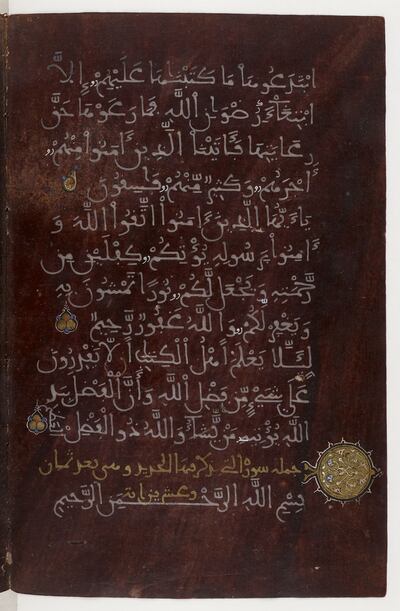 ابْتَدَعُوهَا مَا كَتَبْنَٰهَا عَلَيْهِمُۥٓ إِلَّا
ابْتِغَآءَ رِضْوَٰنِ اللَّهِ فَمَا رَعَوْهَا حَقَّ
رِعَايَتِهَا فَـَٔاتَيْنَا الَّذِينَ ءَامَنُوا مِنْهُمُۥٓ
أَجْرَهُمُۥ وَكَثِيرٌ مِّنْهُمُۥ فَٰسِقُونَ
يَٰٓأَيُّهَا الَّذِينَ ءَامَنُوا اتَّقُوا اللَّهَ وَ
ءَامِنُوا بِرَسُولِهِ يُؤْتِكُمُۥ كِفْلَيْنِ مِن
رَّحْمَتِهِ وَيَجْعَل لَّكُمُۥ نُورًا تَمْشُونَ بِهِ
وَيَغْفِرْ لَكُمُۥ وَاللَّهُ غَفُورٌ رَّحِيمٌ
لِّئَلَّا يَعْلَمَ أَهْلُ الْكِتَٰبِ أَلَّا يَقْدِرُونَ
عَلَىٰ شَيْءٍ مِّن فَضْلِ اللَّهِ وَأَنَّ الْفَضْلَ بِيَدِ
اللَّهِ يُؤْتِيهِ مَن يَّشَآءُ وَاللَّهُ ذُو الْفَضْلِ
جملة سورة التي يذكر فيها الحديد وهي ثمان
وعشرين آية
بِسْمِ اللَّهِ الرَّحْمَٰنِ الرَّحِيمِ